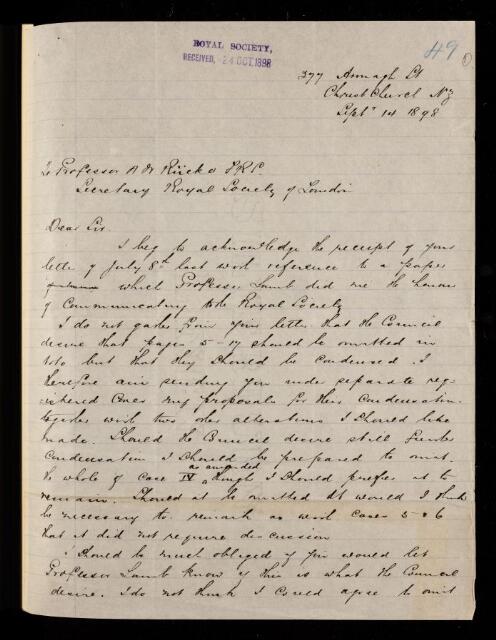 ROYAL SOCIETY,
RECEIVED, 24 OCT. 1898
49
377 Armagh St
Christchurch NZ
Septr 14 1898
To Professor A W Rücker F.R.S.
Secretary Royal Society of London
Dear Sir.
I beg to acknowledge the receipt of your
letter of July 8th last with reference to a paper
which Professor Lamb did me the honour
of communicating to the Royal Society
I do not gather from your letter that the Council
desire that pages 5-17 should be omitted in
toto but that they should be condensed. I
therefore am sending you under separate reg-
istered cover my proposals for their condensation
together with two other alterations I should like
made. Should the Council desire still further
condensation I should be prepared to omit
as amended
the whole of case IV though I should prefer it to
remain. Should it be omitted it would I think
be necessary to remark as with cases 5 & 6
that it did not require discussion
I should be much obliged if you would let
Professor Lamb know if this is what the Council
desire. I do not think I could agree to omit